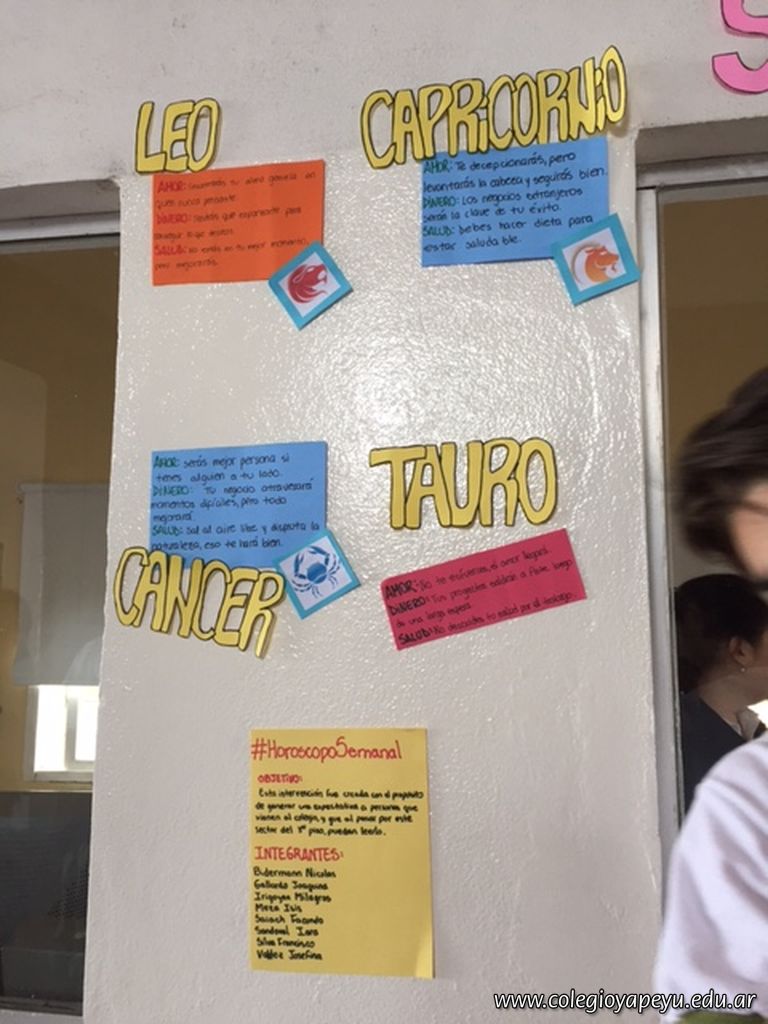 LEO
AMOR: encontrarás tu alma gemela en
quien nunca pensaste.
DINERO: tendrás que esforzarte para
conseguir lo que deseas.
SALUD: no estás en tu mejor momento,
pero mejorarás.
CAPRiCORNiO
AMOR: Te decepcionarás, pero
levantarás la cabeza y seguirás bien.
DINERO: Los negocios extranjeros
serán la clave de tu éxito.
SALUD: Debes hacer dieta para
estar saluda ble.
AMOR: serás mejor persona si
tenes alguien a tu lado.
DINERO: Tu negocio atravesará
momentos difíciles, pero todo
mejorará.
SALUD: sal al aire libre y disfruta la
naturaleza, eso te hará bien.
CANCER
TAURO
AMOR: No te esfuerces, el amor llegará.
DINERO: Tus proyectos saldrán a flote luego
de una larga espera.
SALUD: No descuides tu salud por el trabajo.
#HoroscopoSemanal
OBJETIVO:
Esta intervención fue creada con el propósito
de generar una expectativa a personas que
vienen al colegio, y que al pasar por este
sector del 1º piso, puedan leerlo.
INTEGRANTES:
Bidermann Nicolas
Gallardo Joaquina
Irigoyen Milagros
Meza Isis
Saiach Facundo
Sandoval Iara
Silva Francisco
Valdez Josefina
S
www.colegioyapeyu.edu.ar